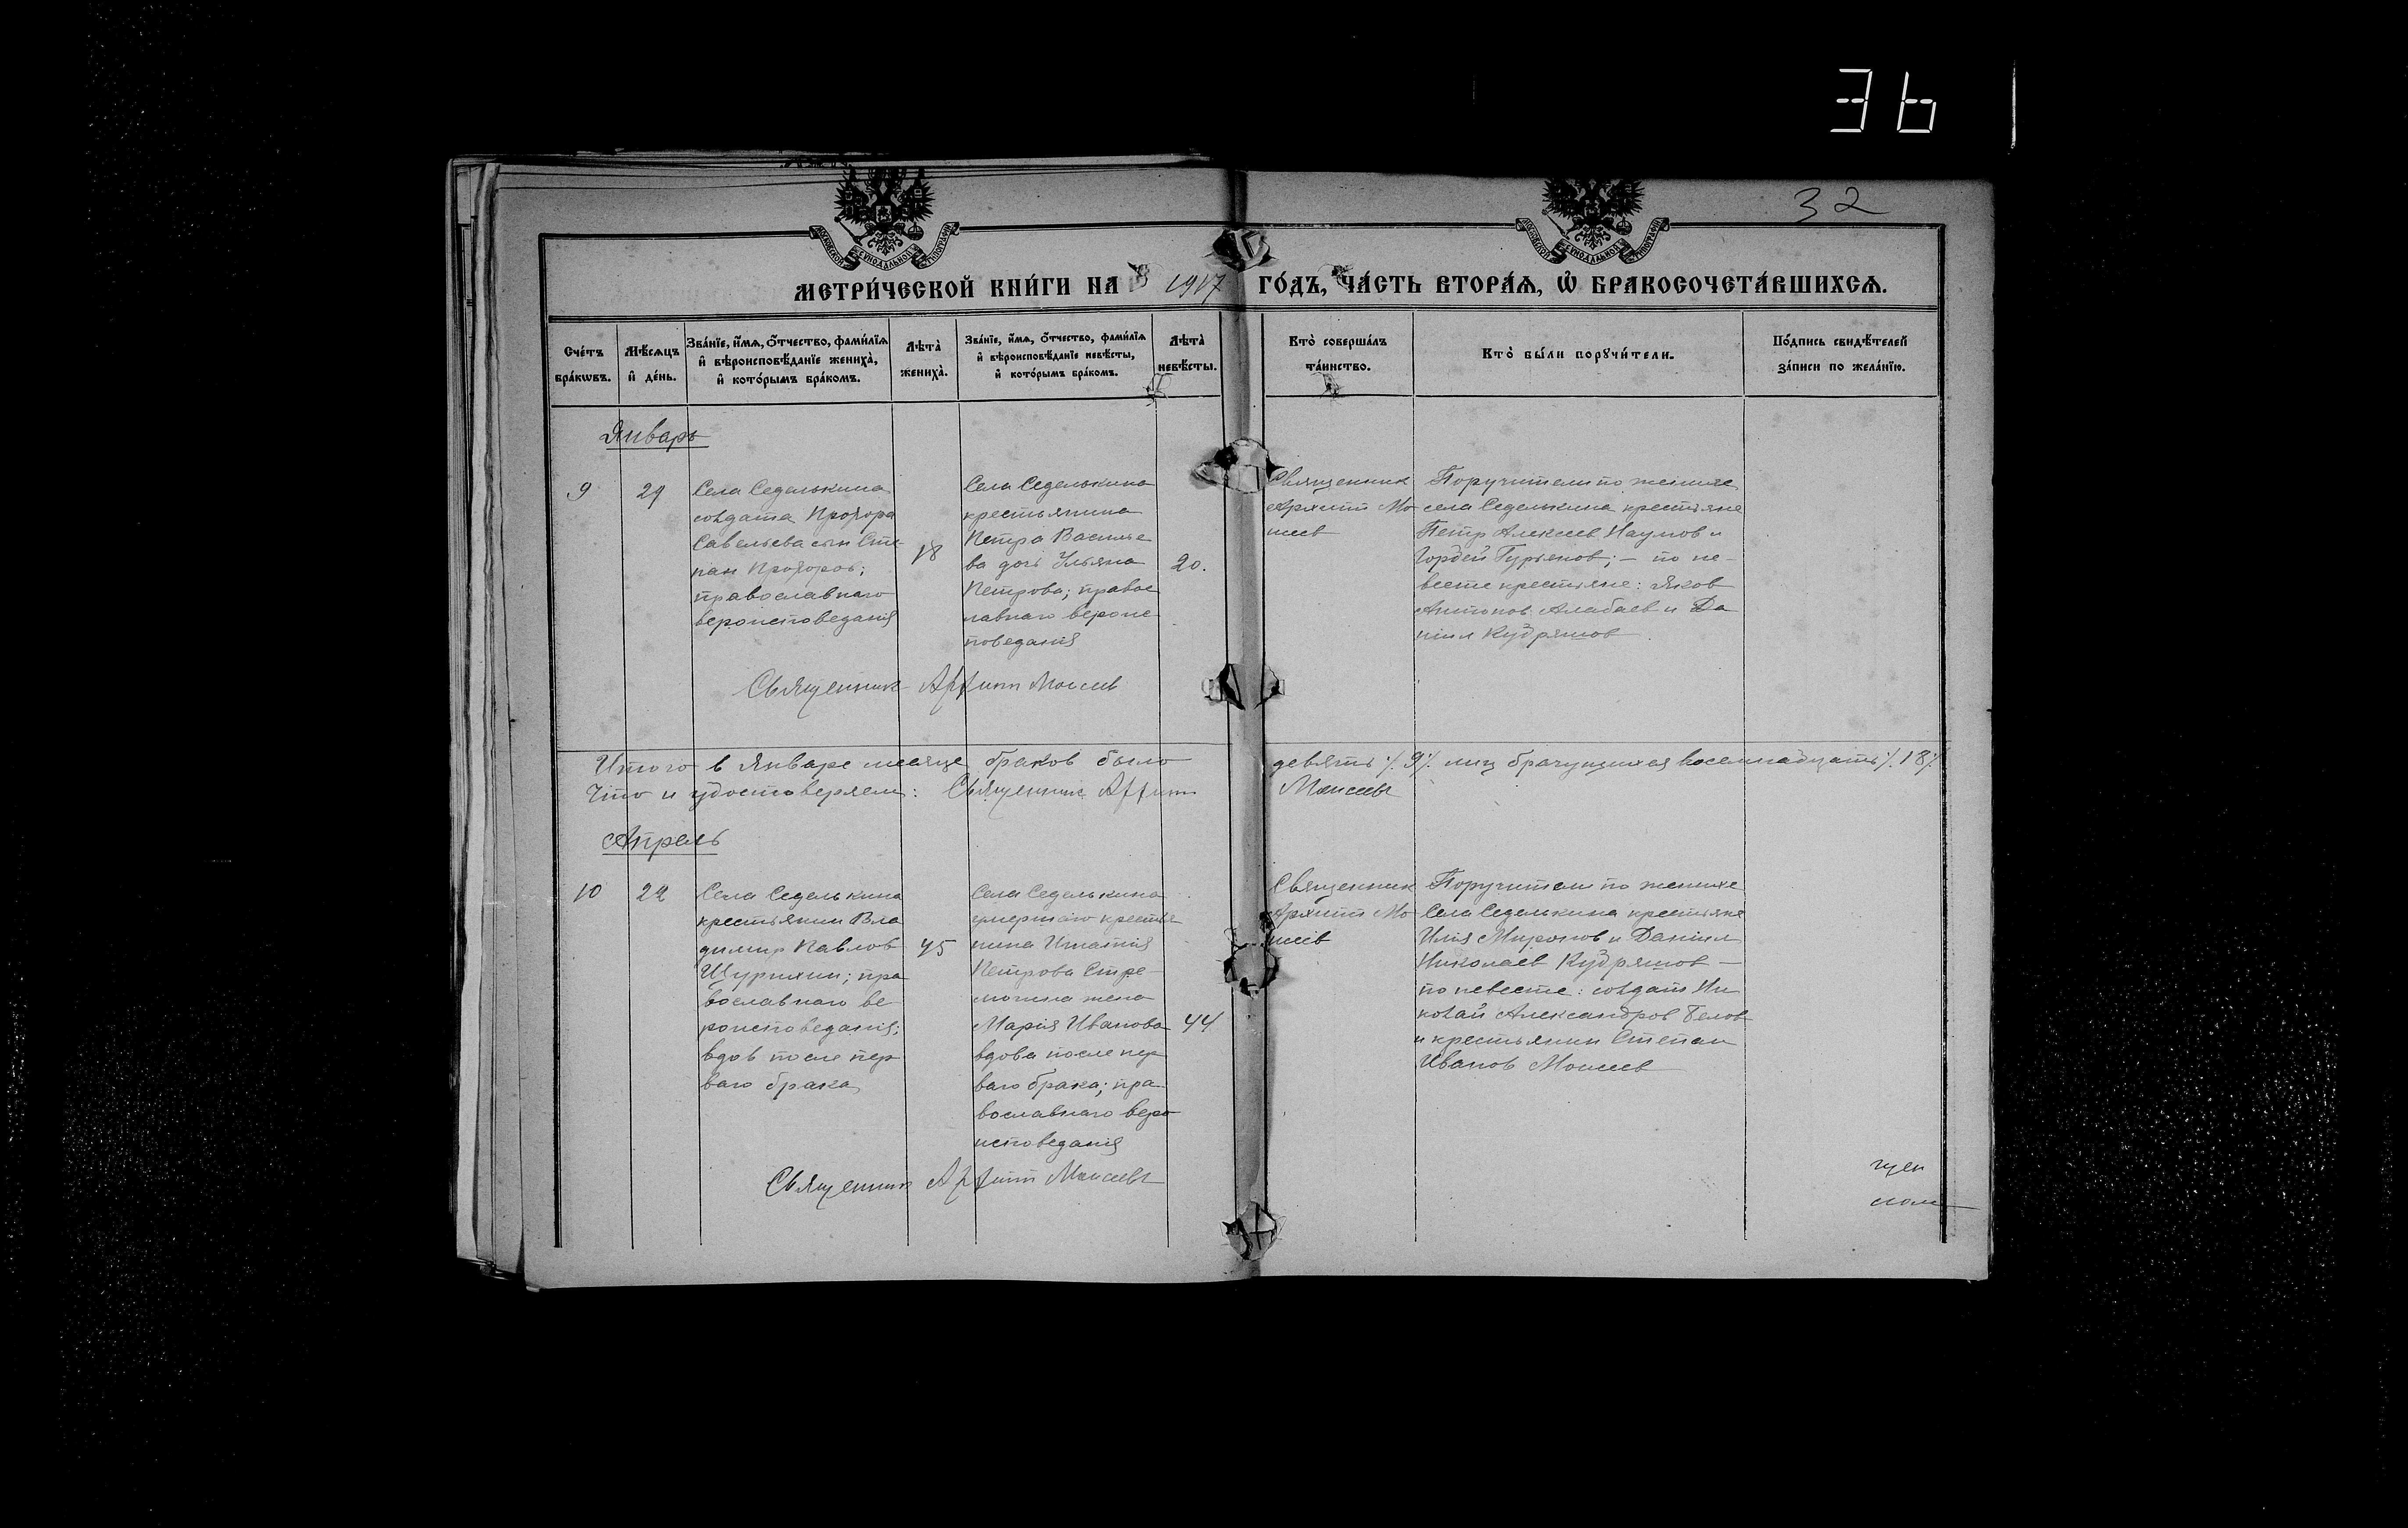 36
32
МОСКОВСКОЙ СѴНОДАЛЬНОЙ ТИПОГРАФІИ
МОСКОВСКОЙ СѴНОДАЛЬНОЙ ТИПОГРАФІИ
МЕТРИ́ЧЕСКОЙ КНИ́ГИ НА 1917 ГО́ДЪ, ЧА́СТЬ ВТОРА́Ѧ, Ѡ҆ БРАКОСОЧЕТА́ВШИХСѦ.
Сче́тъ бра́кѡвъ.
Мѣ́сѧцъ и҆ де́нь.
Зва́нїе, и҆́мѧ, ѻ҆́тчество, фами́лїѧ
и҆ вѣроисповѣ́данїе жениха̀,
и҆ кото́рымъ бра́комъ.
Лѣ́та̀ жениха̀.
Зва́нїе, и҆́мѧ, ѻ҆́тчество, фами́лїѧ
и҆ вѣроисповѣ́данїе невѣ́сты,
и҆ кото́рымъ бра́комъ.
Лѣ́та̀ невѣ́сты.
Кто̀ соверша́лъ
та́инство.
Кто̀ бы́ли порꙋчи́тели.
По́дпись свидѣ́телей
за́писи по жела́нїю.
Январь
9
29
Села Седелькина
солдата Прохора
Савельева сын Сте-
пан Прохоров;
православнаго
вероисповеданія
18
Села Седелькина
крестьянина
Петра Василье
ва дочь Ульяна
Петрова; правос
лавнаго вероис-
поведанія
20.
Священник
Архипп Мо-
исеев
Поручители по женихе
села Седелькина крестьяне
Петр Алексеев Наумов и
Гордей Гурьянов; — по не-
весте крестьяне: Яков
Антонов Алабаев и Да
ніил Кудряшов.
Священник Архипп Моисеев
Итого в Январе месяце браков было девять ·/. 9 ·/. лиц брачущихся восемнадцать ·/. 18 ·/.
Что и удостоверяем: Священник Архипп Моисеев
Апрель
10
22
Села Седелькина
крестьянин Вла
димир Павлов
Щурихин; пра
вославнаго ве-
роисповеданія;
вдов после пер
ваго брака
45
Села Седелькина
умершаго крестья
нина Игнатія
Петрова
жена
Марія Иванова
вдова после пер
ваго брака; пра-
вославнаго веро
исповеданія
44
Священник
Архипп Мо-
исеев
Поручители по женихе
Села Седелькина крестьяне
Илія Миронов и Даніил
Николаев Кудряшов —
по невесте: солдат Ни
колай Александров Белов
и крестьянин Степан
Иванов Моисеев
Священник Архипп Моисеев